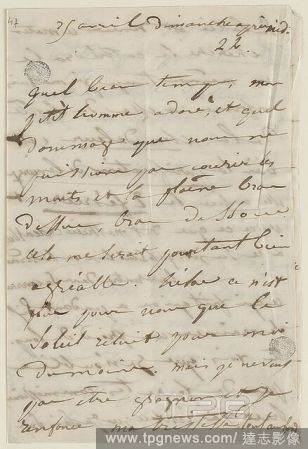 47
25 avril dimanche après midi
2 h.
Quel beau temps, mon
petit homme adoré, et quel
dommage que nous ne
puissions pas courir les
monts et la plaine bras
dessus, bras dessous
cela me serait pourtant bien
agréable. hélas ce n'est
pas pour nous que le
soleil reluit pour moi
du moins mais je ne veux
pas être grognon et je
renfonce ma tristesse tout au fond
TPG
www.tpgnews.com/達志影像